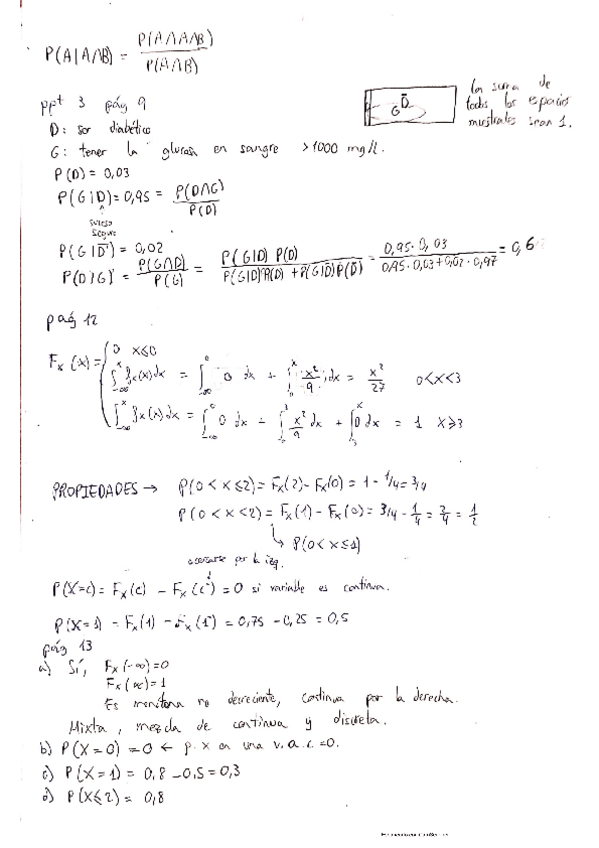 P(A|A∩B) = P(A∩A∩B) / P(A∩B)
ppt 3 pág 9
La suma de todos los espacios muestrales sean 1.
G D̄
D: ser diabético
G: tener la glurosa en sangre >1000 mg/l.
P(D) = 0,03
P(G|D) = 0,95 = P(D∩G) / P(D)
suceso seguro
P(G|D̄) = 0,02
P(D|G) = P(G∩D) / P(G) = P(G|D) P(D) / P(G|D)P(D) + P(G|D̄)P(D̄) = 0,95·0,03 / 0,95·0,03+0,02·0,97 = 0,6
pág 12
Fx(x) = { 0 x≤0
∫_{-∞}^{x} fx(x)dx = ∫_{-∞}^{0} 0 dx + ∫_{0}^{x} x²/9 dx = x²/27 0<x<3
∫_{-∞}^{x} fx(x)dx = ∫_{-∞}^{0} 0 dx + ∫_{0}^{3} x²/9 dx + ∫_{3}^{x} 0 dx = 1 x≥3
PROPIEDADES → P(0<x≤2) = Fx(2) - Fx(0) = 1 - 1/4 = 3/4
P(0<x<2) = Fx(1) - Fx(0) = 3/4 - 1/4 = 2/4 = 1/2
↳ P(0<x≤1)
acercarte por la izq.
P(X=c) = Fx(c) - Fx(c⁻) = 0 si variable es continua.
P(X=1) = Fx(1) - Fx(1⁻) = 0,75 - 0,25 = 0,5
pág 13
a) Sí, Fx(-∞)=0
Fx(∞)=1
Es monótona no decreciente, continua por la derecha.
Mixta, mezcla de continua y discreta.
b) P(X=0) = 0 ← p.x en una v.a.c.=0.
c) P(X=1) = 0,8 - 0,5 = 0,3
d) P(X≤2) = 0,8